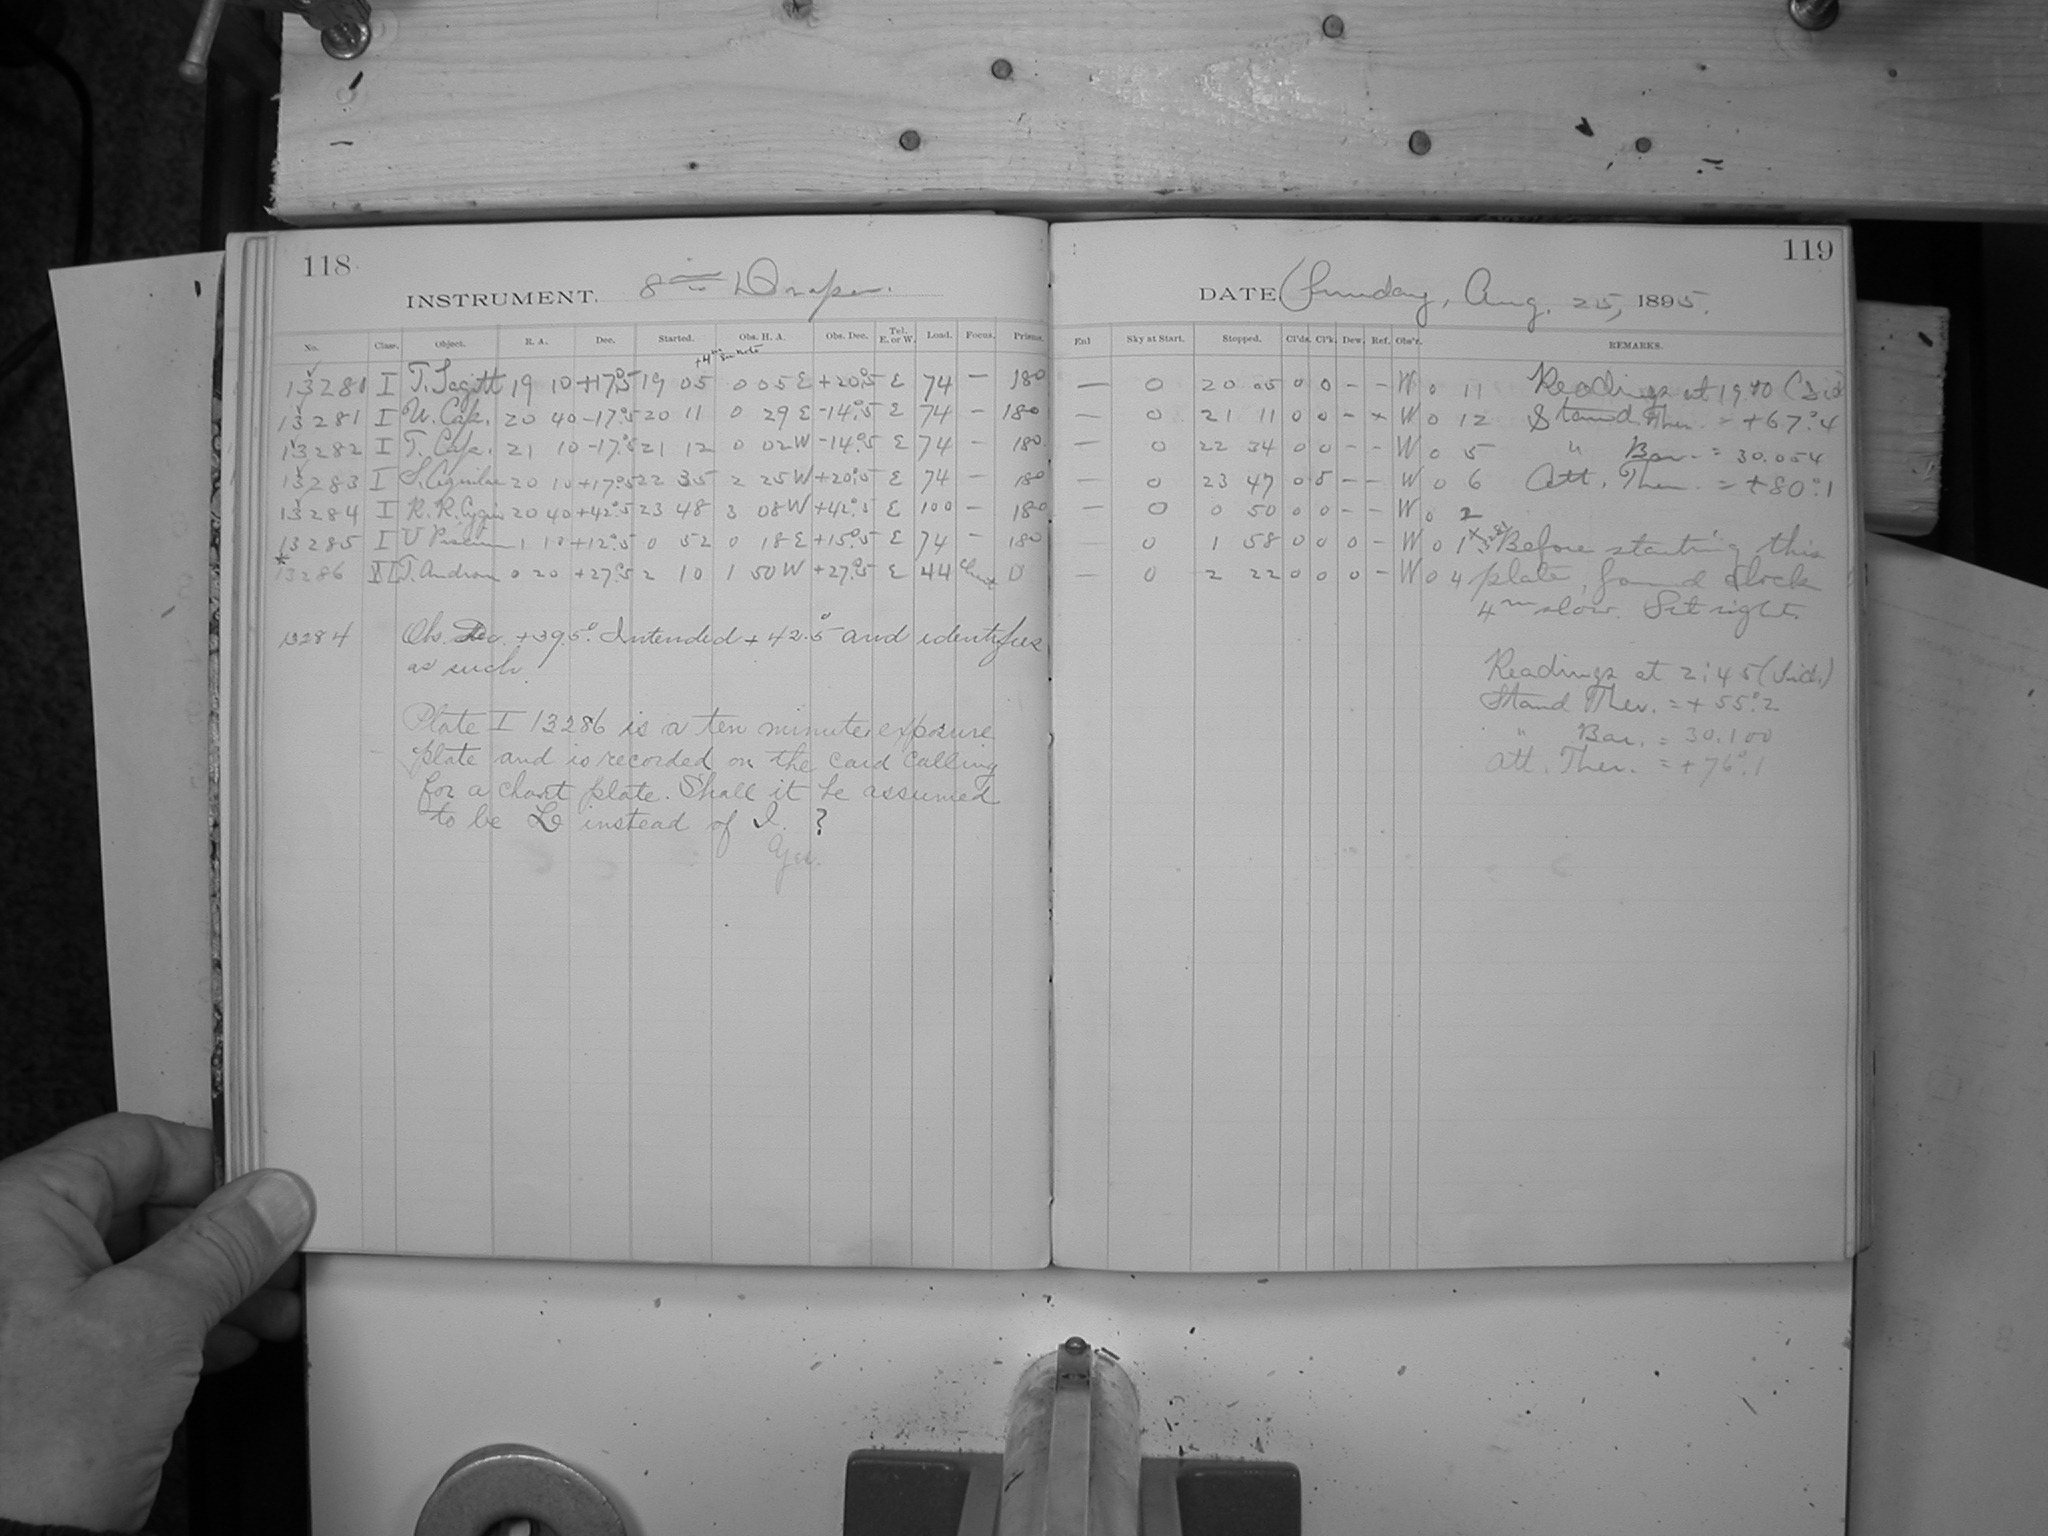 118
INSTRUMENT. 8 in Draper.
No. Class. Object. R. A. Dec. Started. Obs. H. A. Obs. Dec. Tel. E. or W. Load. Focus. Prisms.
+4m
13281 I T. Sagitt 19 10 +17°.5 19 05 0 05 E +20°.5 E 74 — 180
13281 I U. Cap. 20 40 -17°.5 20 11 0 29 E -14°.5 E 74 — 180
13282 I T. Cap. 21 10 -17°.5 21 12 0 02 W -14°.5 E 74 — 180
13283 I S. Aquilae 20 10 +17°.5 22 35 2 25 W +20°.5 E 74 — 180
13284 I R. R. Cygni 20 40 +42°.5 23 48 3 08 W +42°.5 E 100 — 180
13285 I U Piscium 1 10 +12°.5 0 52 0 18 E +15°.5 E 74 — 180
* 13286 T. Androm 0 20 +27°.5 2 10 1 50 W +27°.5 E 44 Chart 0
13284 Obs. Dec. +39.5°. Intended +42.5° and identifies
as such.
Plate I 13286 is a ten minutes exposure
plate and is recorded on the card calling
for a chart plate. Shall it be assumed
to be D instead of I. ?
Yes.
119
DATE Sunday, Aug. 25, 1895.
Enl Sky at Start. Stopped. Cl'ds. Cl'k. Dew. Ref. Obs'r. REMARKS.
— 0 20 05 0 0 - - W 0 11 Readings at 19.40 (Sid
— 0 21 11 0 0 - x W 0 12 Stand. Ther. = +67°.4
— 0 22 34 0 0 - - W 0 5 " Bar. = 30.054
— 0 23 47 0 5 - - W 0 6 Att. Ther. = +80°.1
— 0 0 50 0 0 - - W 0 2
— 0 1 58 0 0 0 - W 0 1 Before starting this
— 0 2 22 0 0 0 - W 0 4 plate, found clock
4m slow. Set right.
Readings at 2:45 (Sid.)
Stand Ther. = +55°.2
" Bar. = 30.100
Att. Ther. = +76°.1